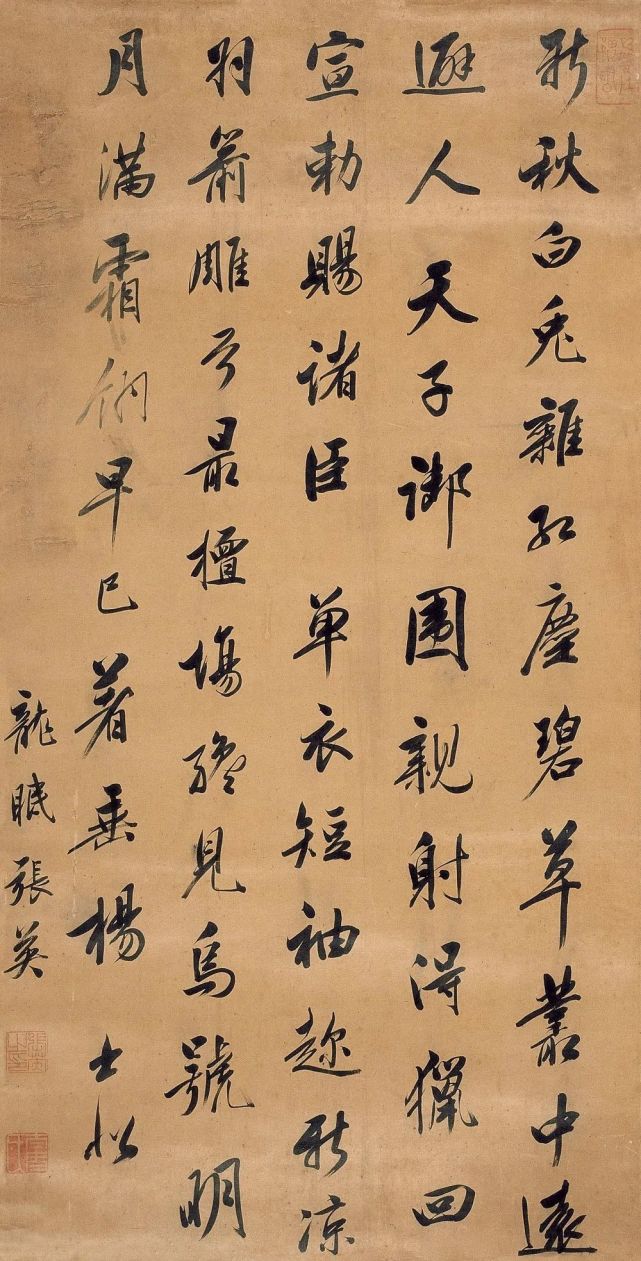 新秋白兔雜紅塵碧草叢中遠
避人天子御圍親射得獵回
宣勅賜諸臣单衣短袖趂新凉
羽箭雕弓最擅場纔見烏號明
月滿霜早已着垂楊
龍眠張英